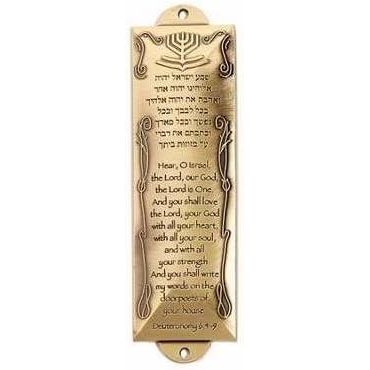 שמע ישראל יהוה
אלוהינו יהוה אחד
ואהבת את יהוה אלהיך
בכל לבבך ובכל
נפשך ובכל מאדך
וכתבתם את דברי
על מזוזות ביתך
Hear, O Israel,
the Lord, our God,
the Lord is One,
And you shall love
the Lord, your God
with all your heart,
with all your soul,
and with all
your strength
And you shall write
my words on the
doorposts of
your house
Deuteronomy 6 4-9